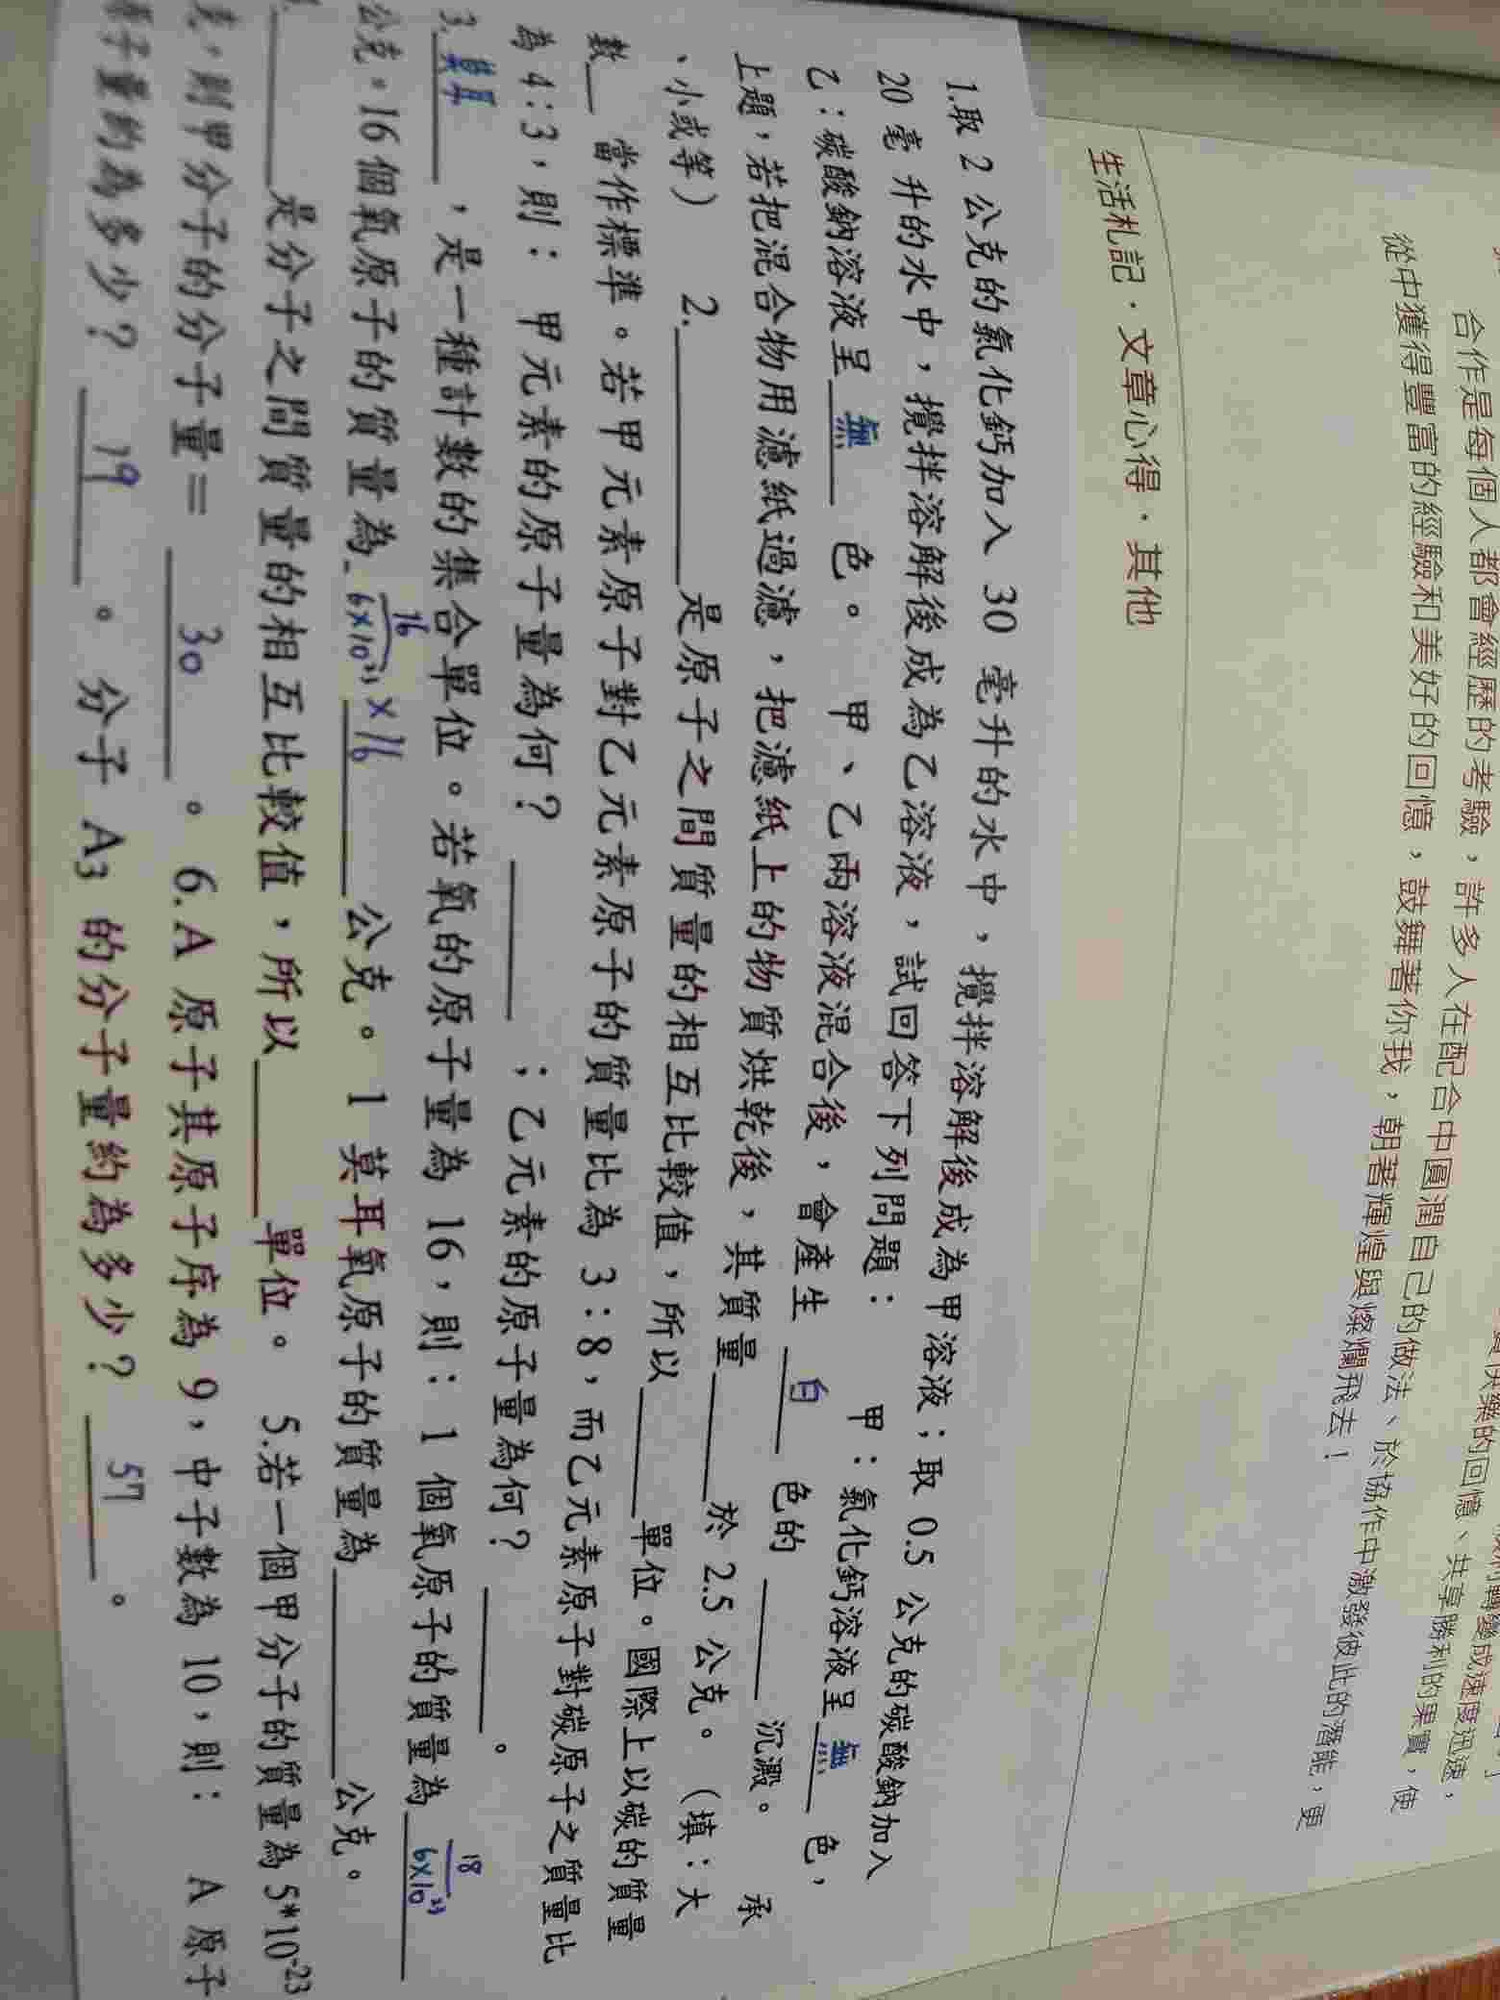 合作是每個人都會經歷的考驗，許多人在配合中圓潤自己的做法、於協作中激發彼此的潛能，更
從中獲得豐富的經驗和美好的回憶，鼓舞著你我，朝著輝煌與燦爛飛去！
生活札記．文章心得．其他
1.取 2 公克的氯化鈣加入 30 毫升的水中，攪拌溶解後成為甲溶液；取 0.5 公克的碳酸鈉加入
20 毫 升的水中，攪拌溶解後成為乙溶液，試回答下列問題： 甲：氯化鈣溶液呈 無 色，
乙：碳酸鈉溶液呈 無 色。 甲、乙兩溶液混合後，會產生 白 色的____沉澱。 承
上題，若把混合物用濾紙過濾，把濾紙上的物質烘乾後，其質量____於 2.5 公克。（填：大
、小或等） 2.____是原子之間質量的相互比較值，所以____單位。國際上以碳的質量
數__ 當作標準。若甲元素原子對乙元素原子的質量比為 3：8，而乙元素原子對碳原子之質量比
為 4：3，則： 甲元素的原子量為何？ ____；乙元素的原子量為何？ ____。
3. 莫耳 ，是一種計數的集合單位。若氧的原子量為 16，則： 1 個氧原子的質量為 18/6×10²³
公克。16 個氧原子的質量為 16/6×10²³ ×16 公克。 1 莫耳氧原子的質量為____公克。
____是分子之間質量的相互比較值，所以____單位。 5.若一個甲分子的質量為 5*10⁻²³
克，則甲分子的分子量＝ 30 。 6.A 原子其原子序為 9，中子數為 10，則： A 原子
原子量約為多少？ 19 。 分子 A₃ 的分子量約為多少？ 57 。